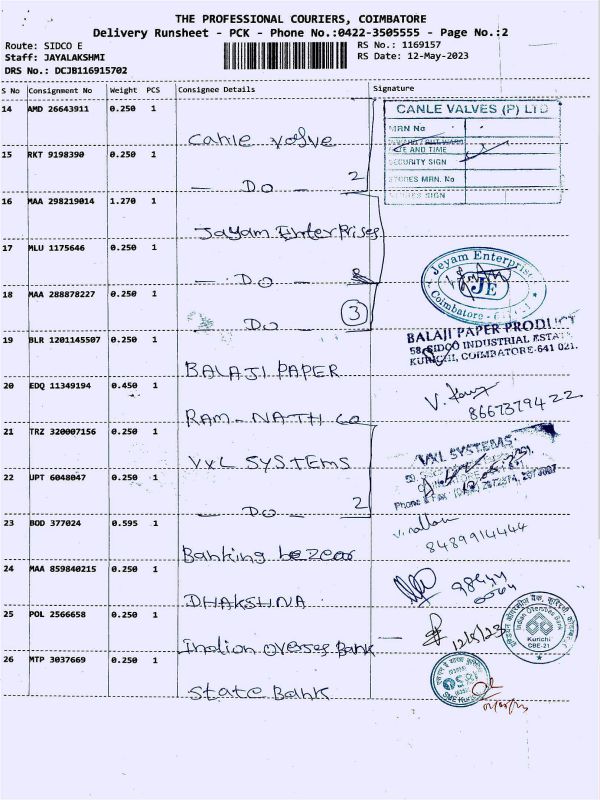 THE PROFESSIONAL COURIERS, COIMBATORE
Delivery Runsheet - PCK - Phone No.:0422-3505555 - Page No.:2
Route: SIDCO E
RS No.: 1169157
Staff: JAYALAKSHMI
RS Date: 12-May-2023
DRS No.: DCJB116915702
S No Consignment No Weight PCS Consignee Details Signature
14 AMD 26643911 0.250 1
Canle valve
CANLE VALVES (P) LTD
MRN No
DATE AND TIME
SECURITY SIGN
STORES MRN. No
STORES SIGN
15 RKT 9198390 0.250 1
— DO — 2
16 MAA 298219014 1.270 1
Jayam Enterprises
17 MLU 1175646 0.250 1
— DO —
Jeyam Enterprise
JE
Coimbatore -
18 MAA 288878227 0.250 1
— DO — 3
19 BLR 1201145507 0.250 1
BALAJI PAPER
BALAJI PAPER PRODUCT
58, SIDCO INDUSTRIAL ESTATE
KURICHI, COIMBATORE-641 021.
20 EDQ 11349194 0.450 1
RAM-NATH co
8667379422
21 TRZ 320007156 0.250 1
VXL SYSTEMS
VXL SYSTEMS
22 UPT 6048047 0.250 1
— DO — 2
23 BOD 377024 0.595 1
Banking bezear
8489914444
24 MAA 859840215 0.250 1
DHAKSHNA
25 POL 2566658 0.250 1
Indian overses Bank
12/5/23
Indian Overseas Bank
Kurichi
CBE-21
26 MTP 3037669 0.250 1
State Bank
SBI